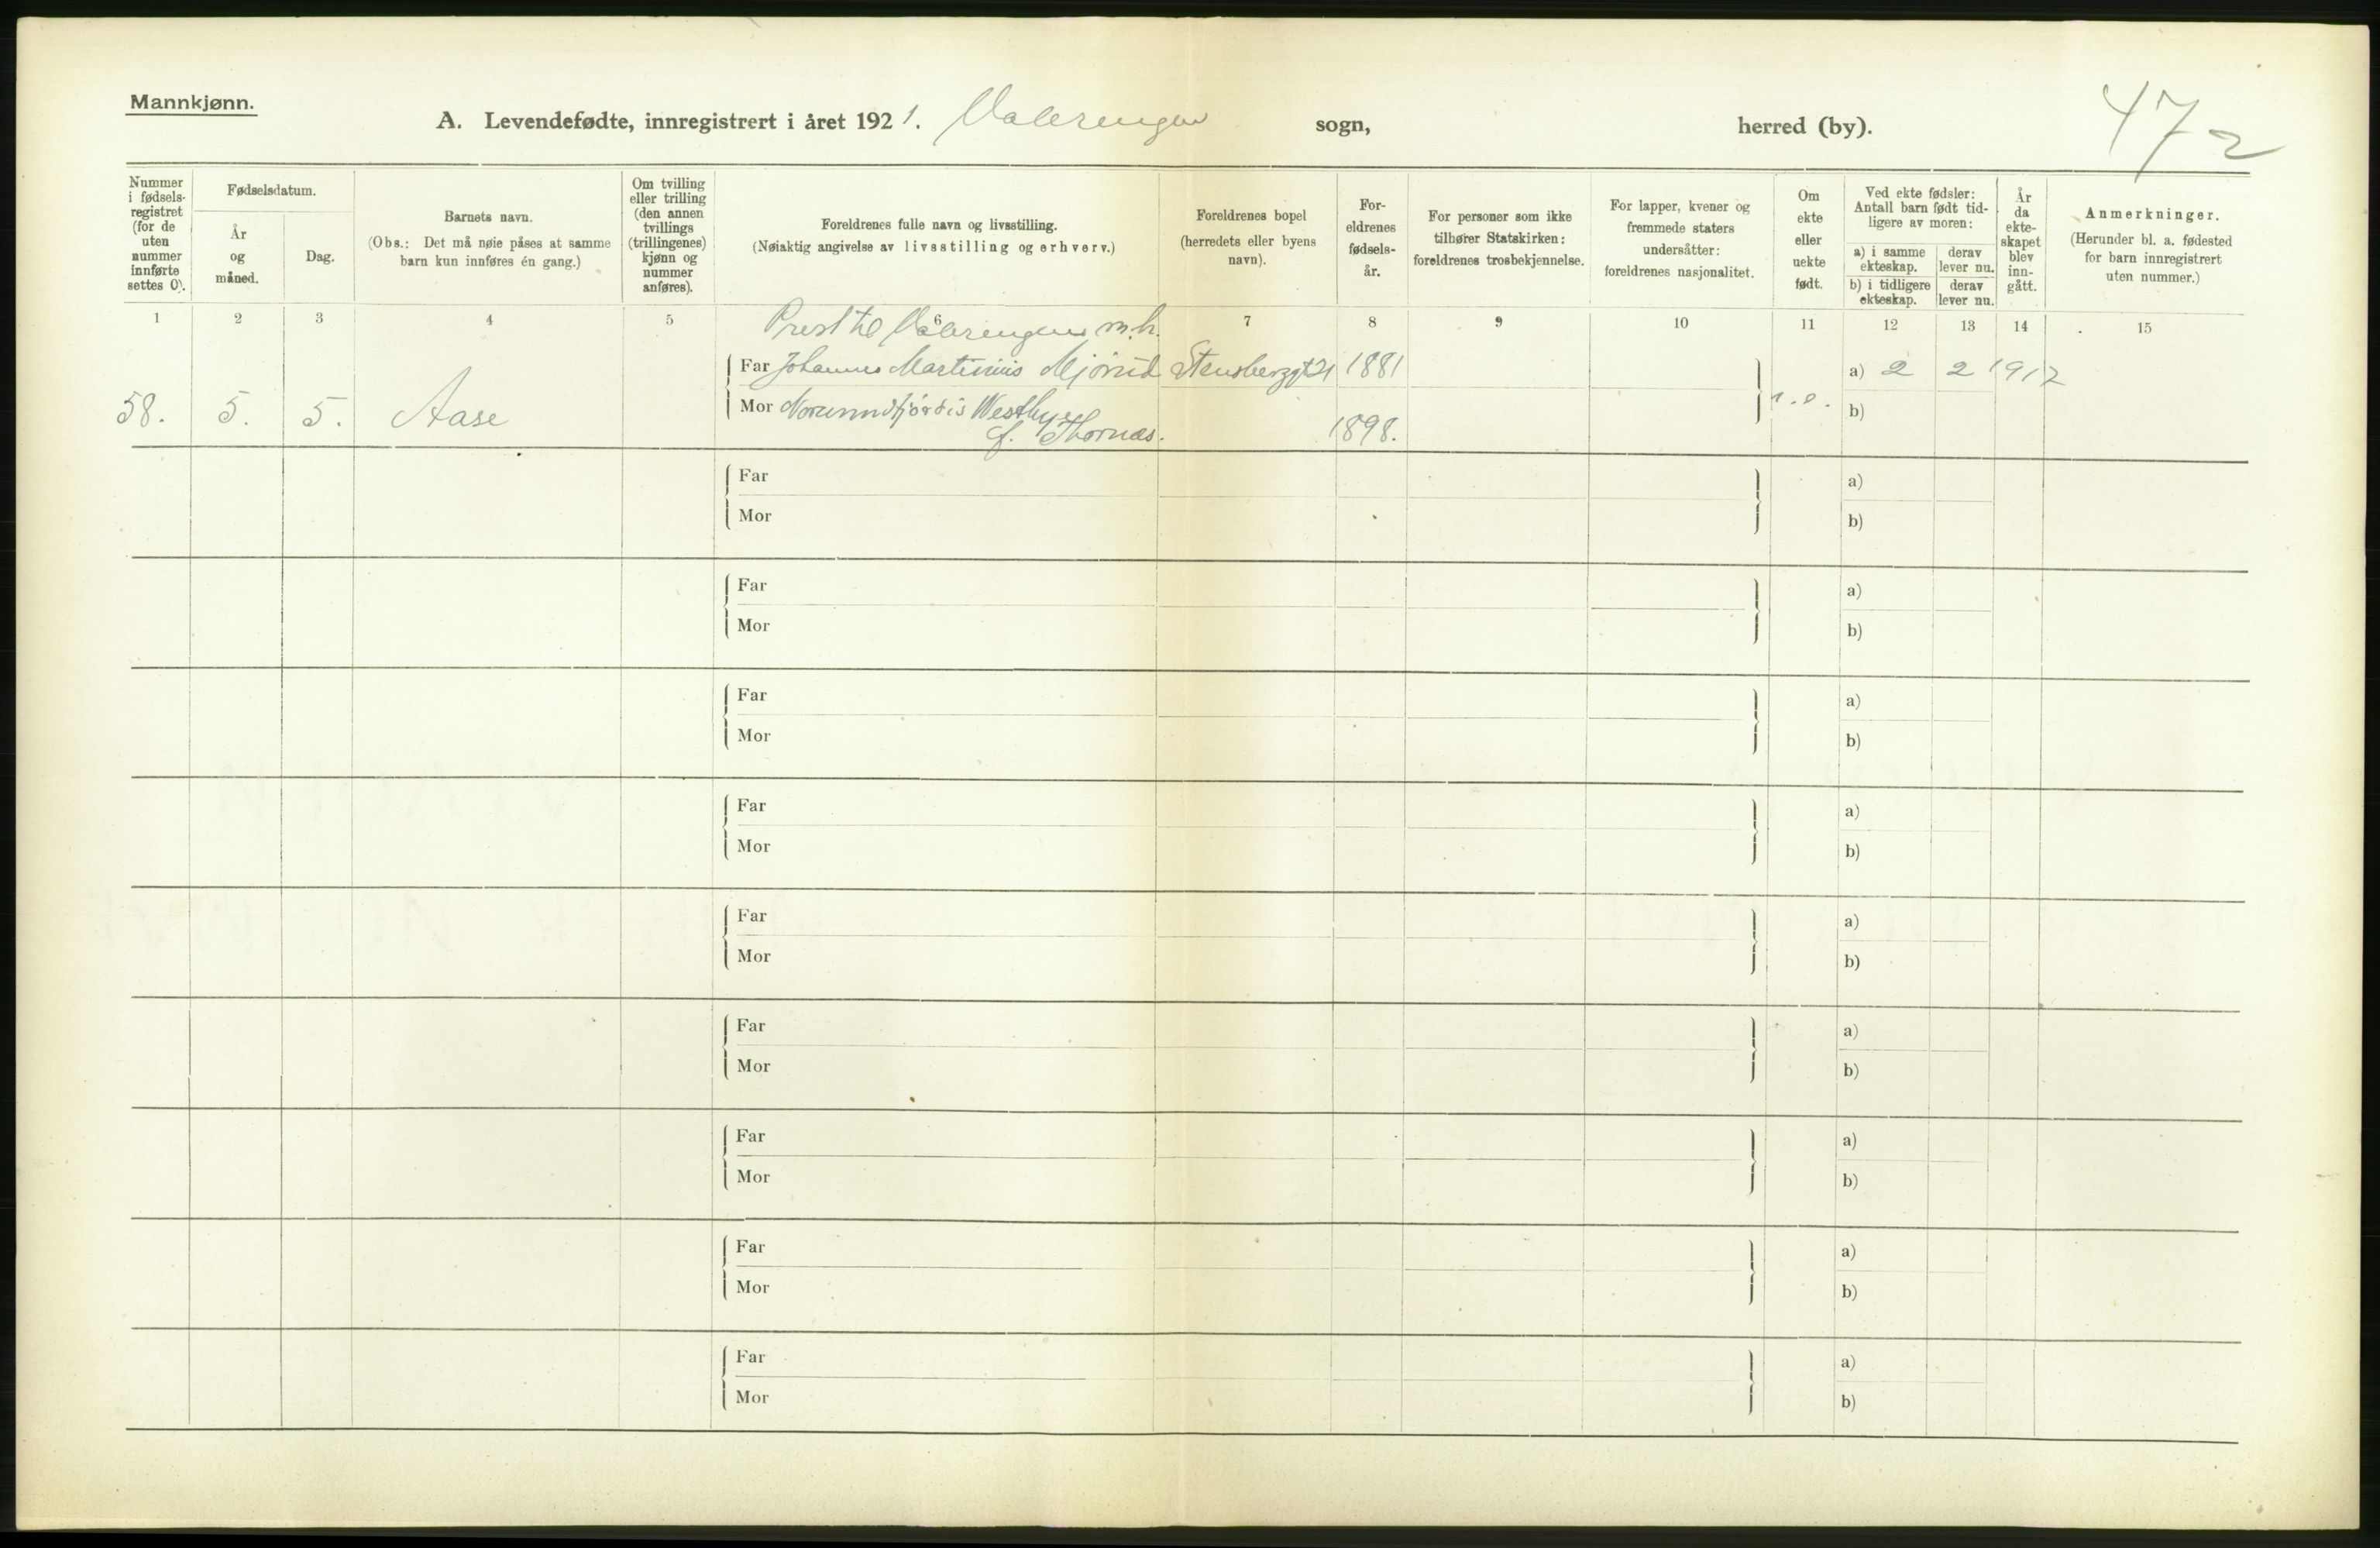 Mannkjønn.
A. Levendefødte, innregistrert i året 1921. Valerengen sogn, herred (by). 47
2
Nummer i fødsels-registret (for de uten nummer innførte settes 0).
Fødselsdatum.
År og måned.
Dag.
Barnets navn.
(Obs.: Det må nøie påses at samme barn kun innføres én gang.)
Om tvilling eller trilling (den annen tvillings (trillingenes) kjønn og nummer anføres).
Foreldrenes fulle navn og livsstilling.
(Nøiaktig angivelse av livsstilling og erhverv.)
Foreldrenes bopel (herredets eller byens navn).
For-eldrenes fødsels-år.
For personer som ikke tilhører Statskirken: foreldrenes trosbekjennelse.
For lapper, kvener og fremmede staters undersåtter: foreldrenes nasjonalitet.
Om ekte eller uekte født.
Ved ekte fødsler: Antall barn født tid-ligere av moren:
a) i samme ekteskap.
derav lever nu.
b) i tidligere ekteskap.
derav lever nu.
År da ekte-skapet blev inn-gått.
Anmerkninger.
(Herunder bl. a. fødested for barn innregistrert uten nummer.)
1 2 3 4 5 6 7 8 9 10 11 12 13 14 15
Prest til Valerengens m.h.
Far Johannes Martinius Mjørud Stensberggt 21 1881 a) 2 2 1917
58. 5. 5. Aase Mor Westbye b)
f. Thornæs. 1898.
Far a)
Mor b)
Far a)
Mor b)
Far a)
Mor b)
Far a)
Mor b)
Far a)
Mor b)
Far a)
Mor b)
Far a)
Mor b)
Far a)
Mor b)
Far a)
Mor b)